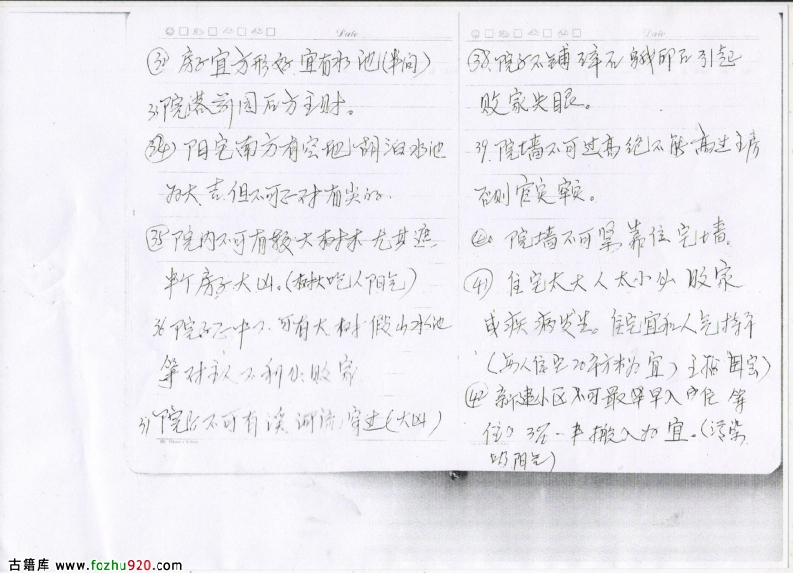 Date
㉜ 房子宜方形好 宜有水池(半间)
院落前圆后方主财。
㉞ 阳宅南方有空地 湖泊水池
为大吉但不可 对有尖的
㉟ 院内不可有较大树木尤其遮
半个房子大凶。(树大吃人阳气)
36 院 中 不可有大树假山水池
等对主人不利 败家
院后不可有溪河流穿过(大凶)
Date
38 院子不铺碎石 引起
败家失眠。
39. 院墙不可过高绝不能高过主房
否则官灾 。
㊵ 院墙不可紧靠住宅墙。
㊶ 住宅太大人太少 败家
或疾病发生。住宅宜和人气持平
( 人住 20平方米为宜)
㊷ 新建小区不可最早早入户住 等
住 搬入为宜。(污染
阳气)
古籍库 www.fozhu920.com